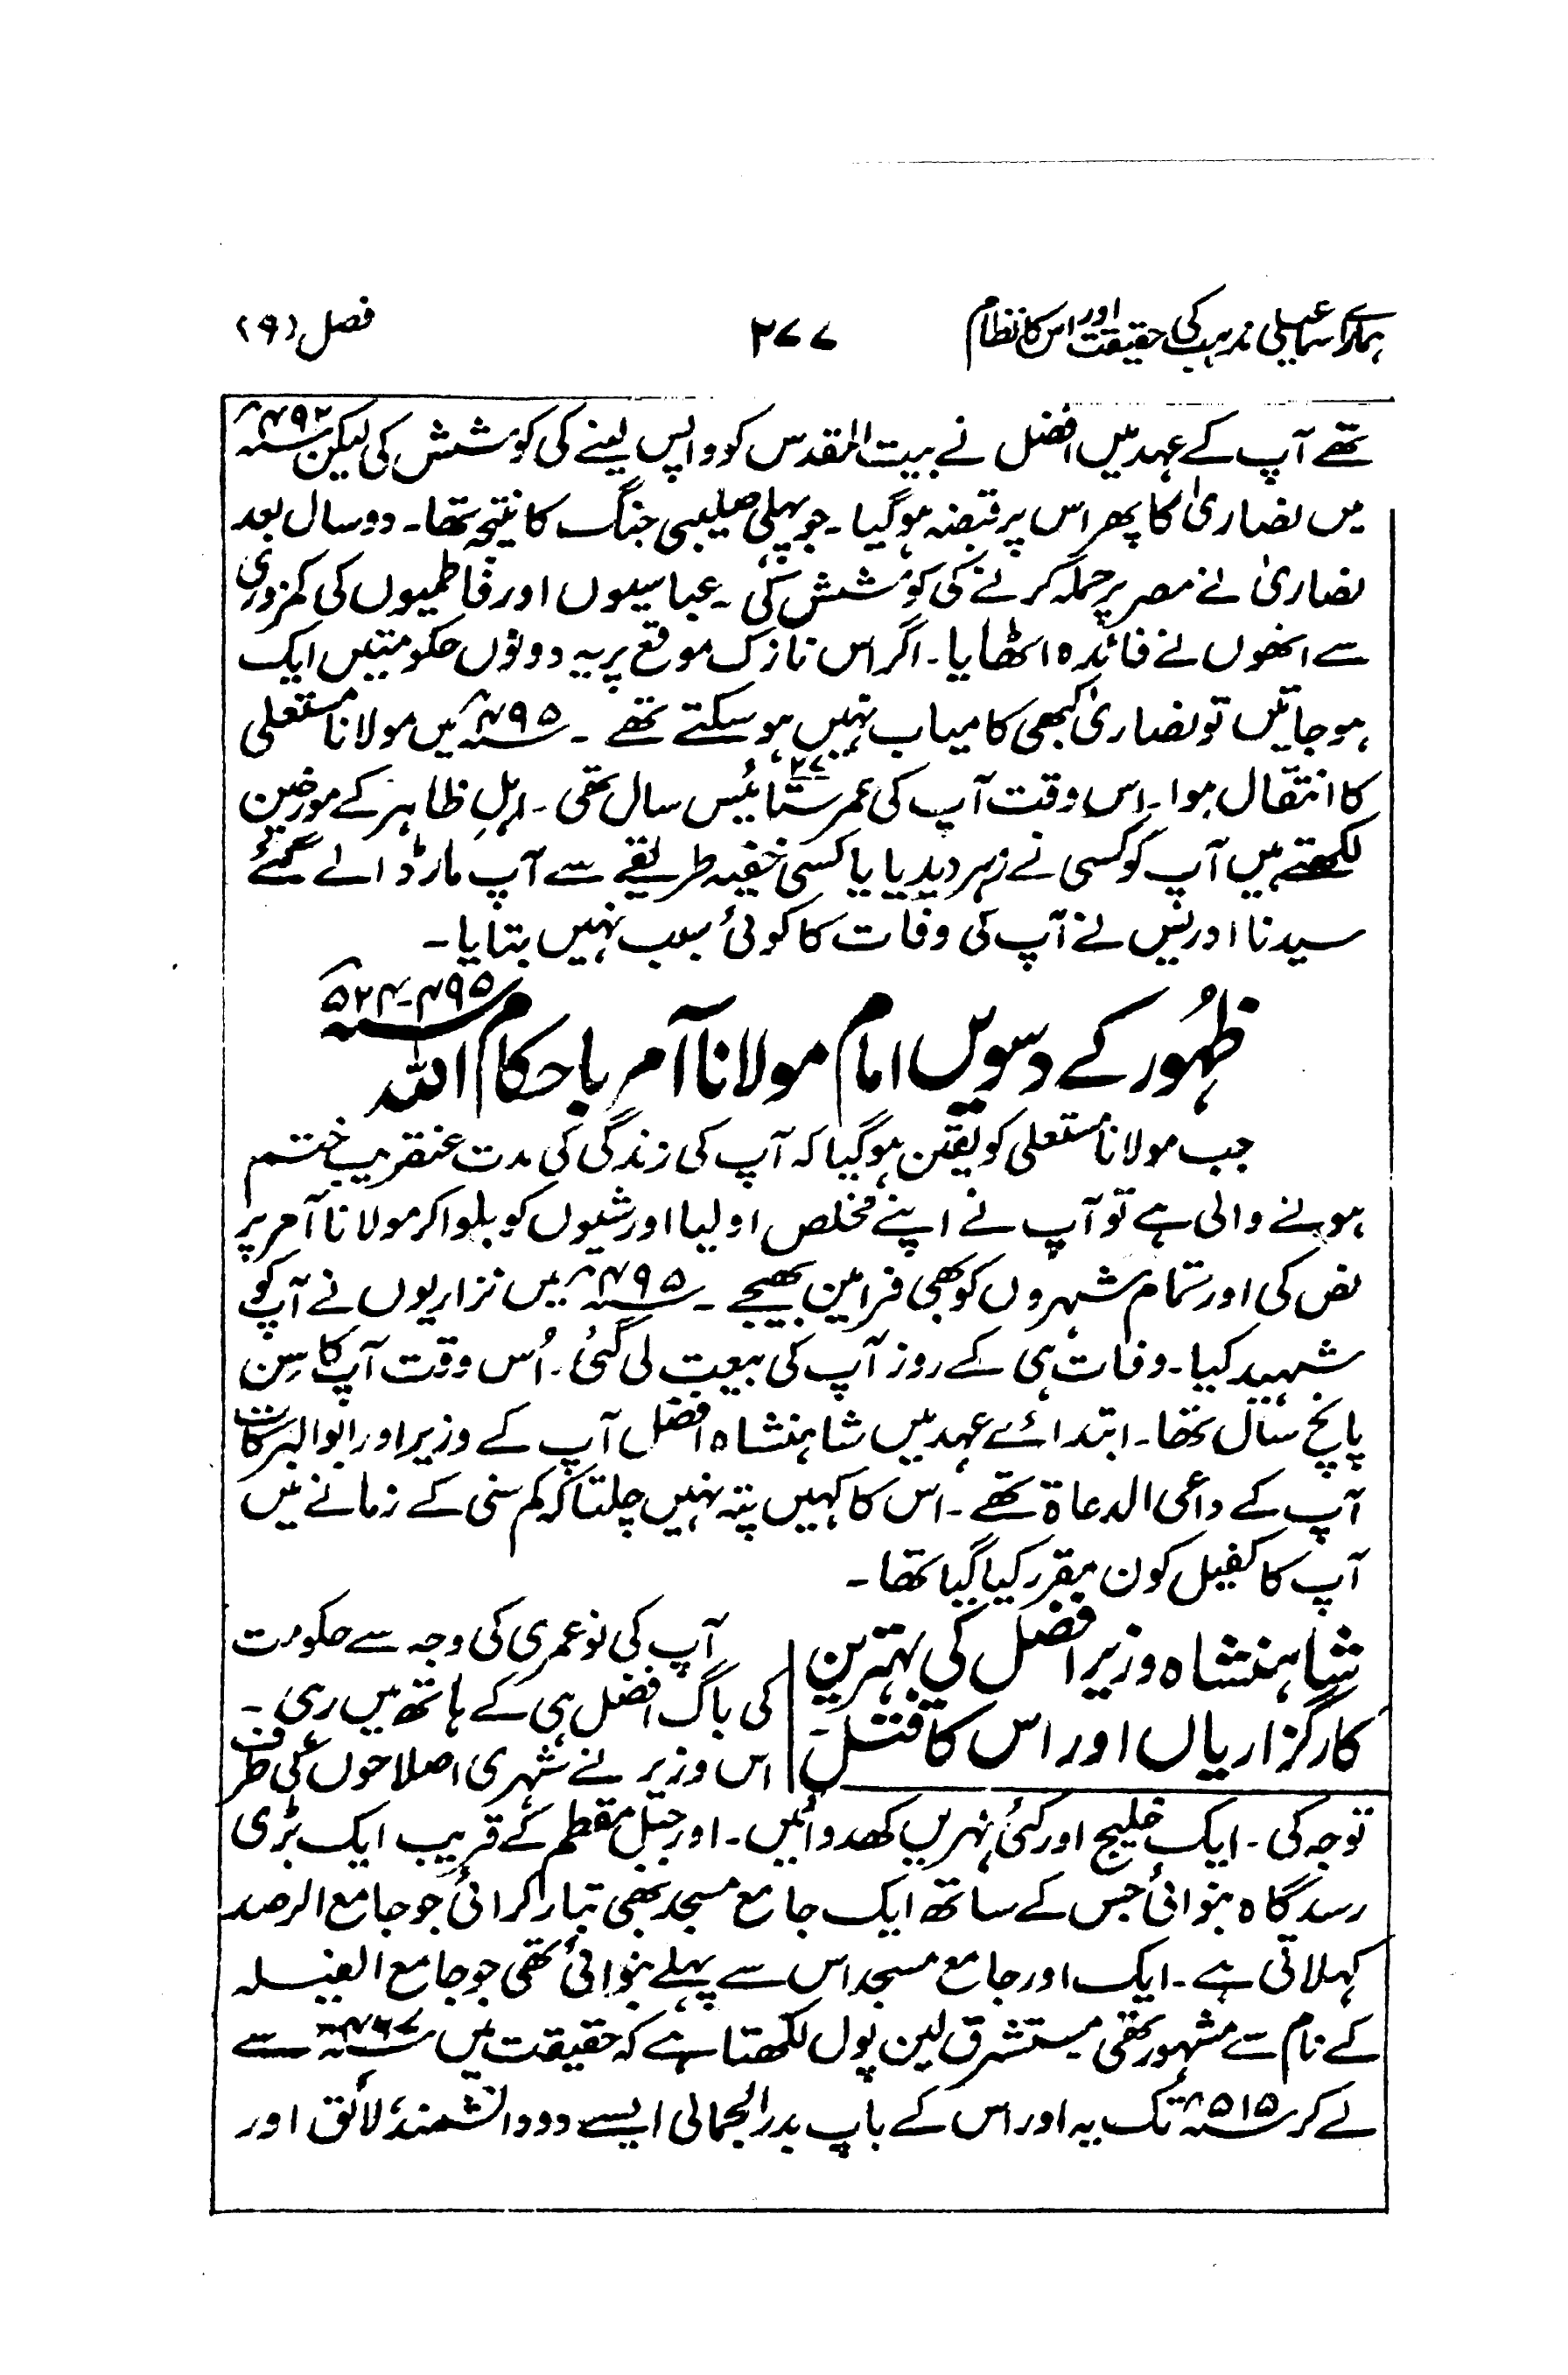 ہمارے اسماعیلی مذہب کی حقیقت اور اس کا نظام ۲۷۷ فصل (۹)
تھے آپ کے عہد میں افضل نے بیت المقدس کو واپس لینے کی کوشش کی لیکن سنہ ۴۹۲ھ
میں نصاریٰ کا پھر اس پر قبضہ ہو گیا۔ جو پہلی صلیبی جنگ کا نتیجہ تھا۔ دو سال بعد
نصاریٰ نے مصر پر حملہ کرنے کی کوشش کی۔ عباسیوں اور فاطمیوں کی کمزوری
سے انھوں نے فائدہ اٹھایا۔ اگر اس نازک موقع پر یہ دونوں حکومتیں ایک
ہو جاتیں تو نصاریٰ کبھی کامیاب نہیں ہو سکتے تھے ۔ سنہ ۴۹۵ھ میں مولانا مستعلی
کا انتقال ہوا۔ اس وقت آپ کی عمر ستائیس ۲۷ سال تھی ۔ اہلِ ظاہر کے مورخین
لکھتے ہیں آپ کو کسی نے زہر دیدیا یا کسی خفیہ طریقے سے آپ مار ڈالے گئے
سیدنا ادریس نے آپ کی وفات کا کوئی سبب نہیں بتایا۔
ظہُور کے دسویں امام مولانا آمر باحکام اللہ سنہ ۴۹۵-۵۲۴ھ
جب مولانا مستعلی کو یقین ہو گیا کہ آپ کی زندگی کی مدت عنقریب ختم
ہونے والی ہے تو آپ نے اپنے مخلص اولیا اور شیوں کو بلوا کر مولانا آمر پر
نص کی اور تمام شہروں کو بھی فرامین بھیجے ۔ سنہ ۴۹۵ھ میں نزاریوں نے آپ کو
شہید کیا۔ وفات ہی کے روز آپ کی بیعت لی گئی۔ اُس وقت آپ کا سِن
پانچ سال تھا۔ ابتدائے عہد میں شاہنشاہ افضل آپ کے وزیر اور ابو البرکات
آپ کے داعی الدعاۃ تھے ۔ اس کا کہیں پتہ نہیں چلتا کہ کم سنی کے زمانے میں
آپ کا کفیل کون مقرر کیا گیا تھا۔
شاہنشاہ وزیر افضل کی بہترین
کارگزاریاں اور اس کا قتل۔
آپ کی نو عمری کی وجہ سے حکومت
کی باگ افضل ہی کے ہاتھ میں رہی ۔
اس وزیر نے شہری اصلاحوں کی طرف
توجہ کی ۔ ایک خلیج اور کئی نہریں کھدوائیں۔ اور جبل مقطم کے قریب ایک بڑی
رسدگاہ بنوائی جس کے ساتھ ایک جامع مسجد بھی تیار کرائی جو جامع الرصد
کہلاتی ہے ۔ ایک اور جامع مسجد اس سے پہلے بنوائی تھی جو جامع الفیلہ
کے نام سے مشہور تھی مستشرق لین پول لکھتا ہے کہ حقیقت میں سنہ ۴۶۷ھ سے
لے کر سنہ ۵۱۵ھ تک یہ اور اس کے باپ بدر الجمالی ایسے دو دانشمند لائق اور